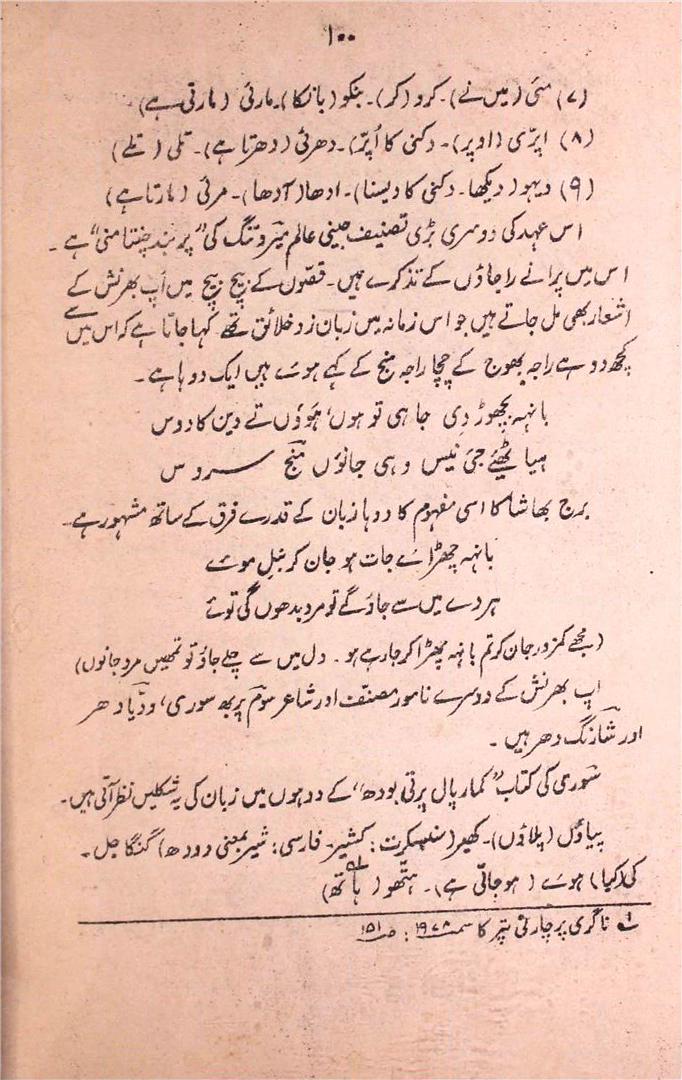 ۱۰۰
(۷) مئی (میں نے)۔ کرو (کر)۔ بنکو (بانکا)۔ مارئی (مارتی ہے)
(۸) اپرّی (اوپر)۔ دکنی کا اُپّر)۔ دھرئی (دھرتا ہے)۔ تلی (تلے)
(۹) دیہو (دیکھا۔ دکنی کا دیسنا)۔ ادھا (آدھا)۔ مرئی (مارتا ہے)
اس عہد کی دوسری بڑی تصنیف جینی عالم میروتنگ کی "پربند چنتامنی" ہے۔
اس میں پرانے راجاؤں کے تذکرے ہیں۔ قصّوں کے بیچ بیچ میں اَپ بھرنش کے
اشعار بھی مل جاتے ہیں جو اس زمانہ میں زبان زد خلائق تھے کہا جاتا ہے کہ اس میں سے
کچھ دوہے راجہ بھوج کے چچا راجہ منج کے کہے ہوئے ہیں ایک دوہا ہے۔
بانہہ بچھوڑدِی جاہی تو ہوں، ہَوؤں تے دین کا دوس
ہیا ٹھئے جئی نیس وہی جانؤں مُنج سروس
برج بھاشا کا اسی مفہوم کا دوہا زبان کے قدرے فرق کے ساتھ مشہور ہے۔
بانہہ چھڑائے جات ہو جان کر نبل موئے
ہردے میں سے جاؤگے تو مرد بدھوں گی توئے
(مجھے کمزور جان کر تم بانہہ چھڑا کر جارہے ہو۔ دل میں سے چلے جاؤ تو تمھیں مرد جانوں)
اپ بھرنش کے دوسرے نامور مصنّف اور شاعر سوم پربھ سوری، ودّیا دھر
اور شارنگ دھر ہیں۔
سوری کی کتاب "کمار پال پرتی بودھ" کے دوہوں میں زبان کی یہ شکلیں نظر آتی ہیں۔
پیاؤں (پلاؤں)۔ کھیر (سنسکرت: کشیر۔ فارسی: شیر بمعنی دودھ) گنگا جل۔
کی (کیا) ہوئے (ہوجاتی ہے)۔ ہتّھو (ہاتھ)
۱؎ ناگری پرچارنی پتر کا سمت ۱۹۷۸: ص ۱۵۱